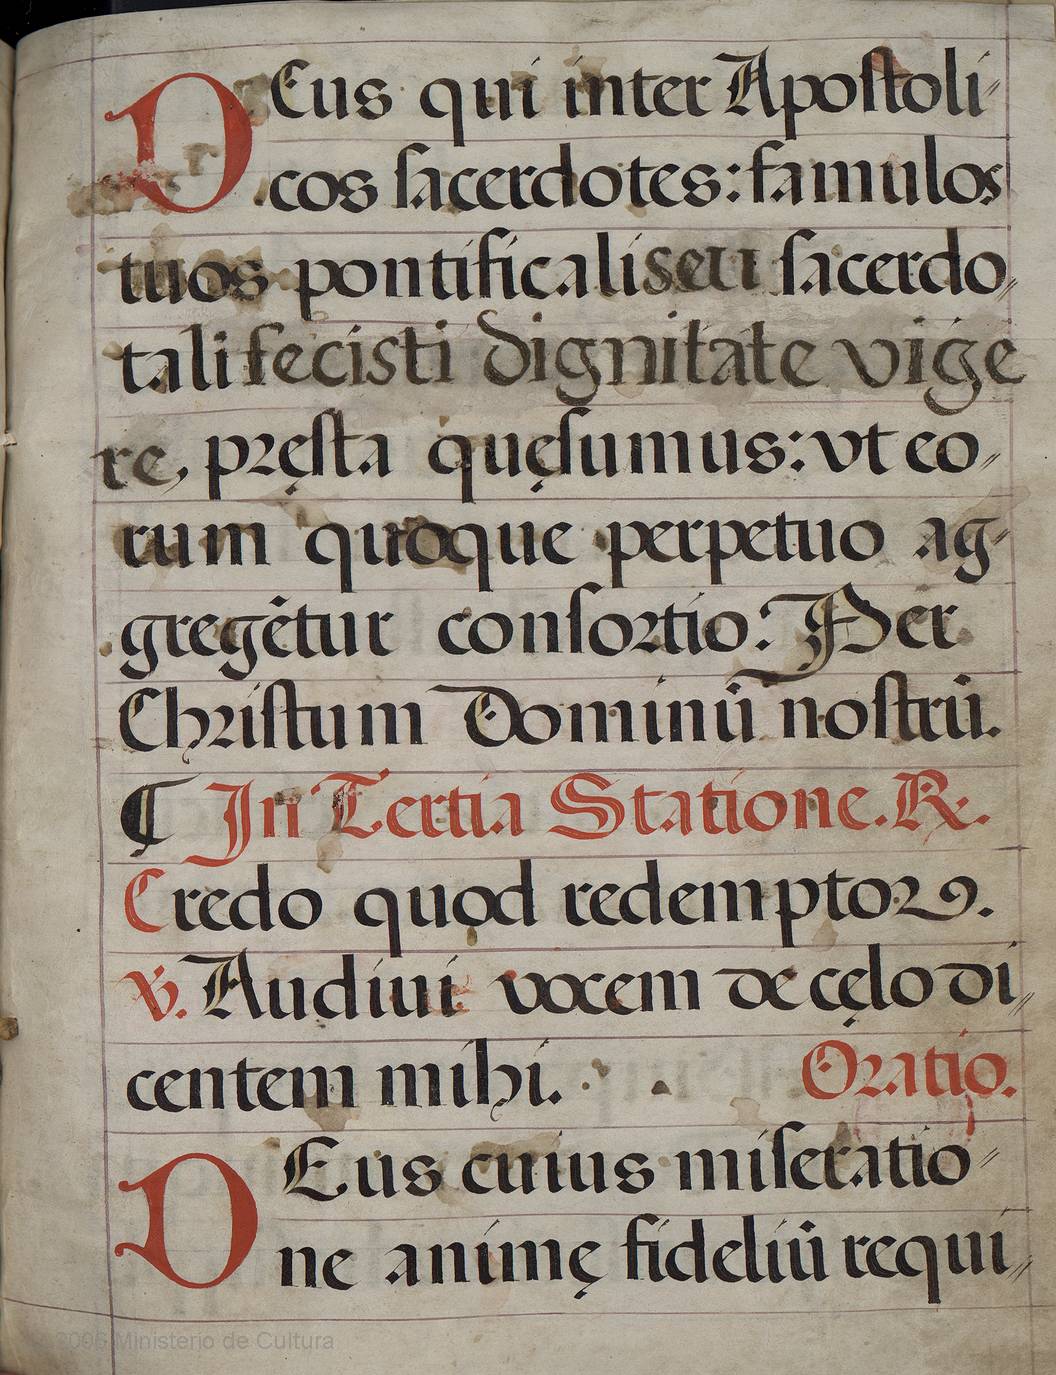 DEus qui inter Apostoli-
cos sacerdotes: famulos
tuos pontificali seu sacerdo,,
tali fecisti dignitate vige
re, pręsta quęsumus: vt eo,,
rum quoque perpetuo ag-
gregẽtur consortio: Per
Christum Dominũ nostrũ.
¶ In Tertia Statione. ℟.
Credo quod redemptorꝰ.
℣. Audiui vocem de cęlo di,,
centem mihi. Oratio.
DEus cuius miseratio-
ne animę fideliũ requi,,
2005 Ministerio de Cultura